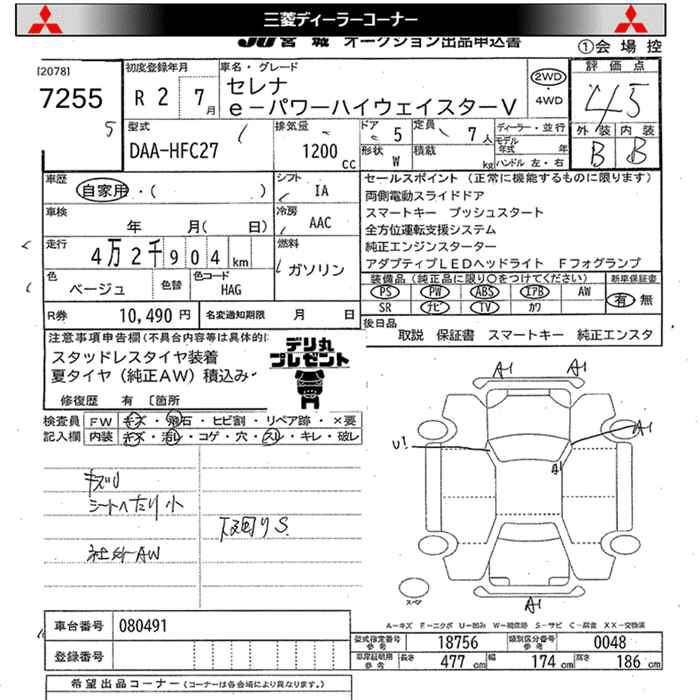 三菱ディーラーコーナー
JU宮城 オークション出品申込書
①会場控
[2078]
7255
5
初度登録年月
R 2 7月
車名・グレード
セレナ
e-パワーハイウェイスターV
2WD
・4WD
評価点
4.5
外装 内装
B B
型式
DAA-HFC27
排気量
1200 cc
ドア 5
形状 W
定員 7人
積載 kg
ディーラー・並行
モデル年式 年
ハンドル 左・右
車歴
自家用・( )
シフト
IA
車検
年 月( 日)
冷房
AAC
走行
4万2千904km
燃料
ガソリン
色
ベージュ
色替
色コード
HAG
R券 10,490円
名変通知期限 月 日
セールスポイント (正常に機能するものに限ります)
両側電動スライドドア
スマートキー プッシュスタート
全方位運転支援システム
純正エンジンスターター
アダプティブLEDヘッドライト Fフォグランプ
装備品(純正品に限り○をつけてください)
PS PW ABS エアB AW
SR ナビ TV カワ
新車保証書
有・無
後日品
取説 保証書 スマートキー 純正エンスタ
注意事項申告欄(不具合内容等は具体的に
スタッドレスタイヤ装着
夏タイヤ(純正AW)積込み
デリ丸
プレゼント
修復歴 有 [箇所
検査員記入欄
FW キズ・飛石・ヒビ割・リペア跡・×要
内装 キズ・汚レ・コゲ・穴・スレ・キレ・破レ
キズU
シートへたり小
下回りS
社外AW
A1 A1
U1 A1
A1
A1
スペア
A-キズ E-エクボ U-凹み W-補修跡 S-サビ C-腐食 XX-交換済
車台番号 080491
登録番号
型式指定番号 参考 18756
類別区分番号 参考 0048
車庫証明用 参考 長さ 477cm 幅 174cm 高さ 186cm
希望出品コーナー (コーナーは各会場により異なります。)